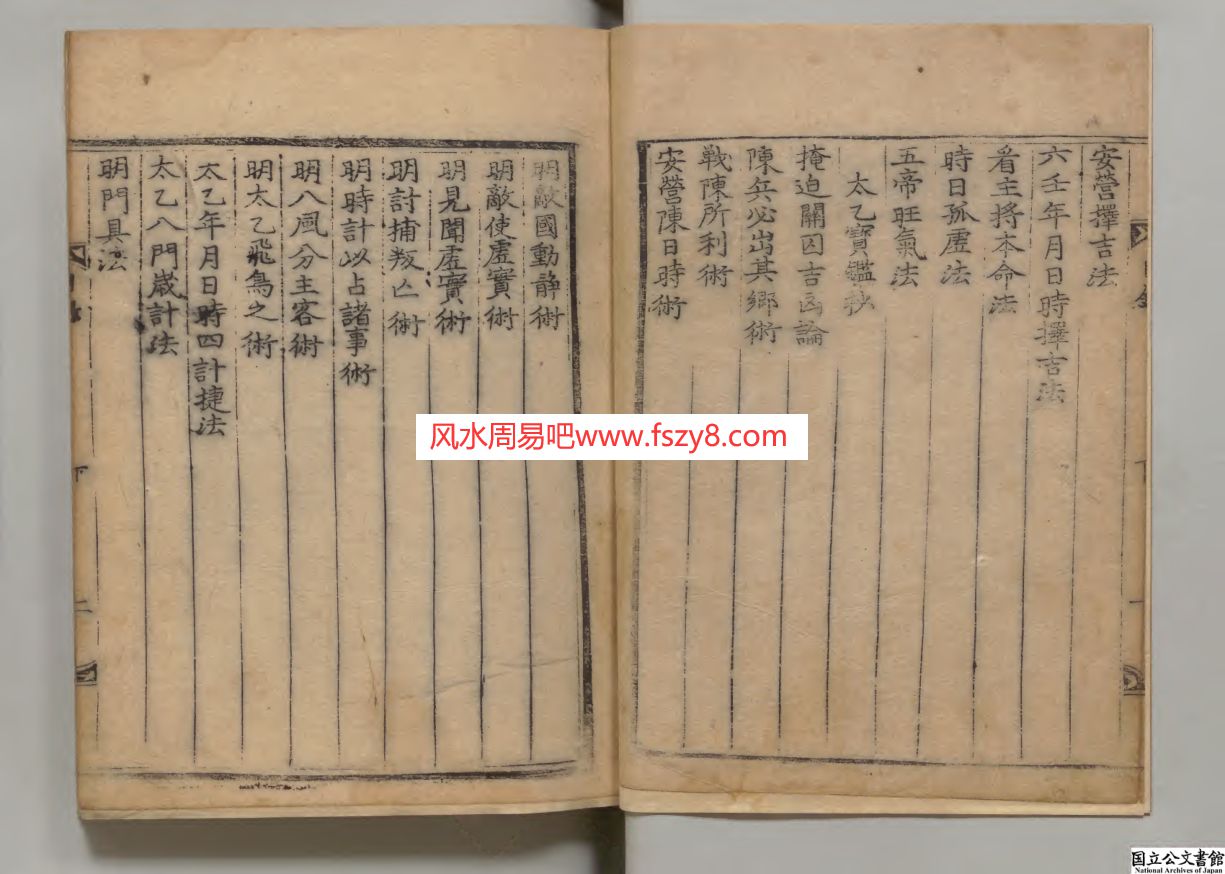 安營擇吉法
六壬年月日時擇吉法
看主將本命法
時日孤虛法
五帝旺氣法
太乙寶鑑抄
掩迫關囚吉凶論
陳兵必出其鄉術
戰陳所利術
安營陳日時術
明敵國動静術
明敵使虛實術
明見聞虛實術
明討捕叛亾術
明時計以占諸事術
明八風分主客術
明太乙飛鳥之術
太乙年月日時四計捷法
太乙八門歲計法
明門具法
下
二
风水周易吧www.fszy8.com
国立公文書館
National Archives of Japan